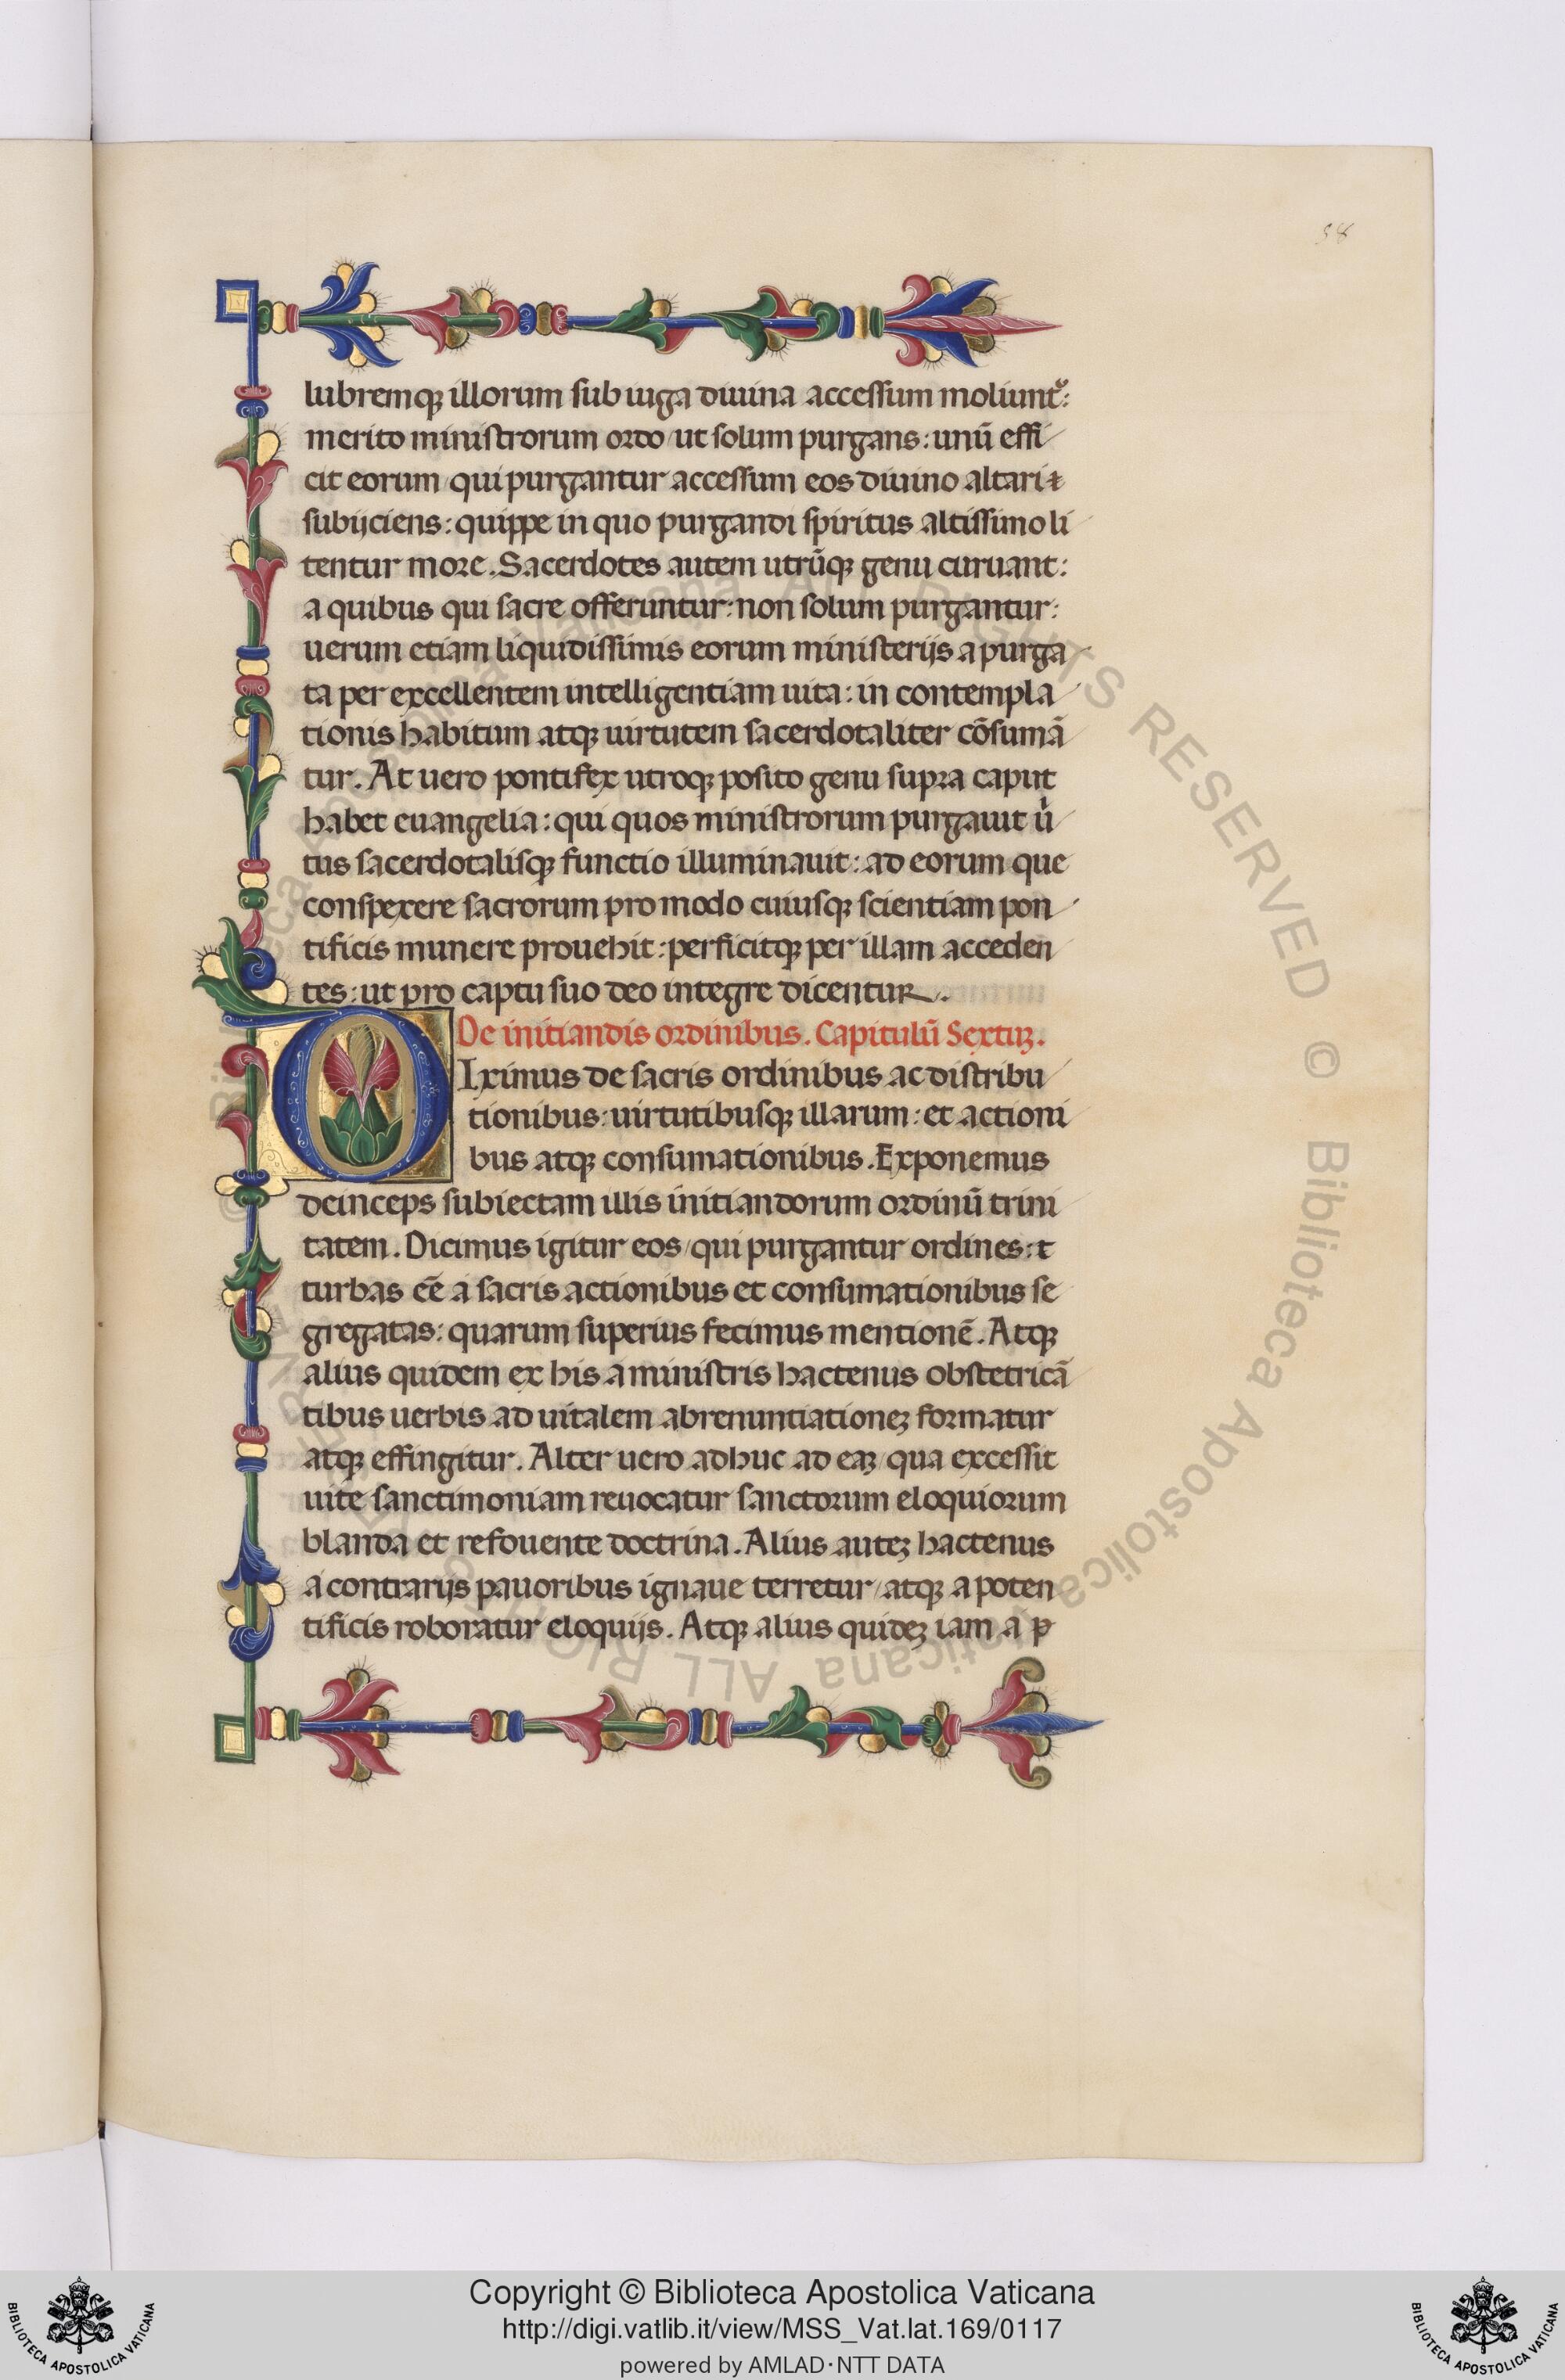 58
lubremqꝫ illorum sub iuga diuina accessum moliunt᷑:
merito ministrorum ordo/ut solum purgans: unū effi
cit eorum/qui purgantur accessum eos diuino altari ⁊
subijciens: quippe in quo purgandi spiritus altissimo li
tentur more. Sacerdotes autem utrūqꝫ genu curuant:
a quibus qui sacre offeruntur: non solum purgantur:
uerum etiam liquidissimis eorum ministerijs a purga
ta per excellentem intelligentiam uita: in contempla
tionis habitum atqꝫ uirtutem sacerdotaliter cōsumā
tur. At uero pontifex utroqꝫ posito genu supra caput
habet euangelia: qui quos ministrorum purgauit uˀ
tus sacerdotalisqꝫ functio illuminauit: ad eorum que
conspexere sacrorum pro modo cuiusqꝫ scientiam pon
tificis munere prouehit: perficitqꝫ per illam acceden
tes: ut pro captu suo deo integre dicentur.
De initiandis ordinibus. Capitulū Sextuꝫ.
DIximus de sacris ordinibus ac distribu
tionibus: uirtutibusqꝫ illarum: et actioni
bus atqꝫ consumationibus. Exponemus
deinceps subiectam illis initiandorum ordinū trini
tatem. Dicimus igitur eos/qui purgantur ordines: ⁊
turbas eē a sacris actionibus et consumationibus se
gregatas: quarum superius fecimus mentionē. Atqꝫ
alius quidem ex his a ministris hactenus obstetricā
tibus uerbis ad uitalem abrenuntiationeꝫ formatur
atqꝫ effingitur. Alter uero adhuc ad eaꝫ/qua excessit
uite sanctimoniam reuocatur sanctorum eloquiorum
blanda et refouente doctrina. Alius auteꝫ hactenus
a contrarijs pauoribus ignaue terretur/atqꝫ a poten
tificis roboratur eloquijs. Atqꝫ alius quideꝫ iam a ꝑ
© Biblioteca Apostolica Vaticana ALL RIGHTS RESERVED
© Biblioteca Apostolica Vaticana ALL RIGHTS RESERVED
Copyright © Biblioteca Apostolica Vaticana
http://digi.vatlib.it/view/MSS_Vat.lat.169/0117
powered by AMLAD·NTT DATA
BIBLIOTECA APOSTOLICA VATICANA
BIBLIOTECA APOSTOLICA VATICANA